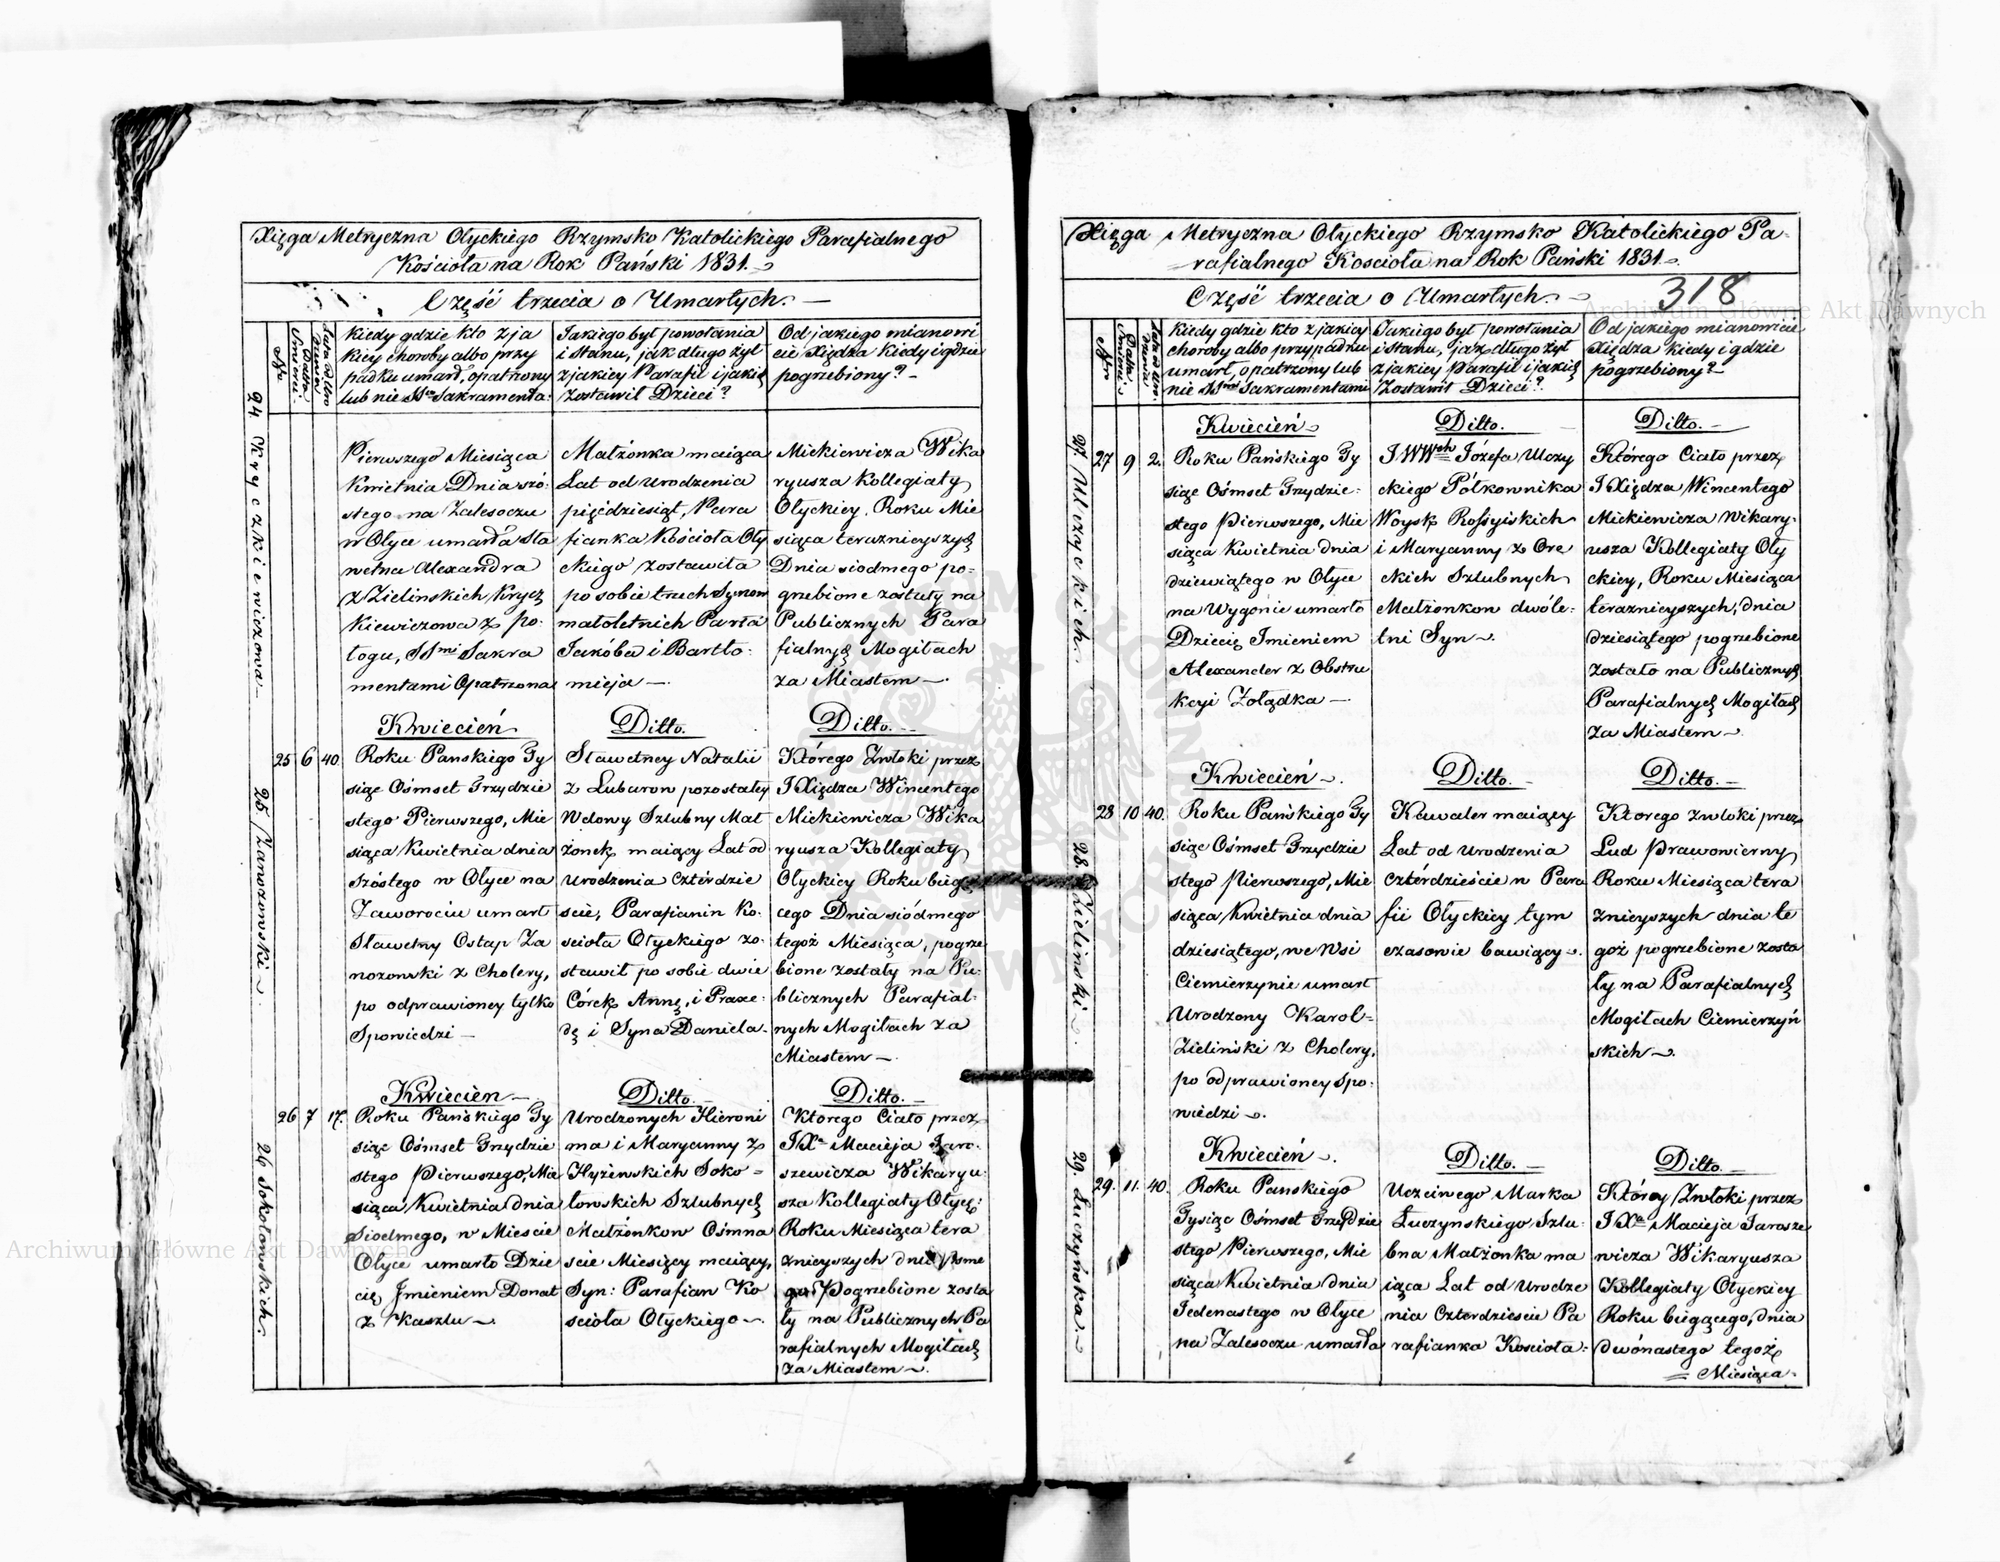 Xięga Metryczna Ołyckiego Rzymsko Katolickiego Parafialnego
Kościoła na Rok Pański 1831.
Część trzecia o Umarłych.
Nro
Data Śmierci
Lata od Uro dzenia
Kiedy gdzie kto z ja
kiey choroby albo przy
padku umarł, opatrzony
lub nie SSmi Sakramenta:
Jakiego był powołania
i stanu, jak długo żył
z jakiey Parafii i jakich
zostawił Dzieci?
Od jakiego mianowi
cie Xiędza kiedy i gdzie
pogrzebiony?
24 Kryczkiewiczowa
Pierwszego Miesiąca
Kwietnia Dnia szó:
stego na Zalesoczu
w Ołyce umarła Sła
wetna Alexandra
z Zielinskich Krycz
kiewiczowa z po:
łogu, SSmi Sakra
mentami Opatrzona
Małżonka maiąca
Lat od urodzenia
pięćdziesiąt, Para
fianka Kościoła Oły
ckiego zostawiła
po sobie trzech Synow
małoletnich Pawła
Jakóba i Bartło:
mieja
Mickiewicza Wika
ryusza Kollegiaty
Ołyckiey. Roku Mie
siąca teraznieyszych
Dnia siodmego po=
grzebione zostały na
Publicznych Para
fialnych Mogiłach
za Miastem
25 Zanozowski
Kwiecień
Ditto.
Ditto.
25 6 40
Roku Panskiego Ty
siąc Ośmset Trzydzie
stego Pierwszego, Mie
siąca Kwietnia dnia
szóstego w Ołyce na
Zaworociu umarł
Sławetny Ostap Za
nozowski z Cholery,
po odprawioney tylko
Spowiedzi
Sławetney Natalii
z Luburow pozostałey
Wdowy Szlubny Mał
żonek, maiący Lat od
urodzenia Czterdzie
ście, Parafianin Ko:
scioła Ołyckiego zo:
stawił po sobie dwie
Córek Annę, i Praxe:
dę i Syna Daniela
Którego Zwłoki przez
JXiędza Wincentego
Mickiewicza Wika
ryusza Kollegiaty
Ołyckiey Roku bieg
cego Dnia siódmego
tegoż Miesiąca, pogrze
bione zostały na Pu:
blicznych Parafial
nych Mogiłach za
Miastem
26 Sokołowskich
Kwiecień
Ditto.
Ditto.
26 7 17.
Roku Pańskiego Ty
siąc Ośmset Trzydzie
stego Pierwszego, Mie
siąca Kwietnia dnia
Siodmego, w Mieście
Ołyce umarło Dzie
cię Jmieniem Donat
z Kaszlu
Urodzonych Hieroni
ma i Maryanny z
Hyżewskich Soko=
łowskich Szlubnych
Małżonkow Ośmna
ście Miesięcy maiący,
Syn: Parafian Ko
ścioła Ołyckiego
Ktorego Ciało przez
JXa Macieja Jaro
szewicza Wikaryu
sza Kollegiaty Ołyck:
Roku Miesiąca tera
znieyszych dnia osme
go Pogrzebione zosta
ły na Publicznych Pa
rafialnych Mogiłach
za Miastem
Xięga Metryczna Ołyckiego Rzymsko Katolickiego Pa=
rafialnego Koscioła na Rok Pański 1831.
Część trzecia o Umarłych.
318
Nro
Data Śmierci.
Lata od Uro dzenia.
Kiedy gdzie kto z jakiey
choroby albo przypadku
umarł, opatrzony lub
nie SSmi Sakramentami
Jakiego był powołania
i stanu, jak długo żył
z jakiey Parafii i jakich
Zostawił Dzieci?
Od jakiego mianowicie
Xiędza kiedy i gdzie
pogrzebiony?
27. Uczyckich
Kwiecień
Ditto.
Ditto.
27 9 2.
Roku Pańskiego Ty
siąc Ośmset Trzydzie:
stego Pierwszego, Mie
siąca Kwietnia dnia
dziewiątego w Ołyce
na Wygonie umarło
Dziecię Jmieniem
Alexander z Obstru
kcyi Żołądka
JWWch Józefa Uczy
ckiego Półkownika
Woysk Rossyiskich
i Maryanny z Ore
ckich Szlubnych
Małżonkow dwóle:
tni Syn
Którego Ciało przez
JXiędza Wincentego
Mickiewicza Wikary:
usza Kollegiaty Oły
ckiey, Roku Miesiąca
teraznieyszych, dnia
dziesiątego pogrzebione
zostało na Publicznych
Parafialnych Mogiłach
za Miastem
28. Zielinski
Kwiecień
Ditto.
Ditto.
28 10 40.
Roku Pańskiego Ty
siąc Ośmset Trzydzie
stego Pierwszego, Mie
siąca Kwietnia dnia
dziesiątego, we Wsi
Ciemierzynie umarł
Urodzony Karol
Zieliński z Cholery,
po odprawioney Spo:
wiedzi
Kawaler maiący
Lat od Urodzenia
Czterdzieście w Para
fii Ołyckiey tym
czasowie bawiący
Ktorego zwłoki przez
Lud Prawowierny
Roku Miesiąca tera
znieyszych dnia te
goż pogrzebione zosta
ły na Parafialnych
Mogiłach Ciemierzyń
skich
29. Łuczyńska
Kwiecień
Ditto.
Ditto.
29. 11. 40.
Roku Panskiego
Tysiąc Ośmset Trzydzie
stego Pierwszego, Mie
siąca Kwietnia dnia
Jedenastego w Ołyce
na Zalesoczu umarła
Uczciwego Marka
Łuczynskiego Szlu:
bna Małżonka ma
iąca Lat od Urodze
nia Czterdzieście Pa
rafianka Kościoła:
Którey Zwłoki przez
JXa Macieja Jarosze
wicza Wikaryusza
Kollegiaty Ołyckiey
Roku biegącego, dnia
dwónastego tegoż
Miesiąca
Archiwum Główne Akt Dawnych
Archiwum Główne Akt Dawnych